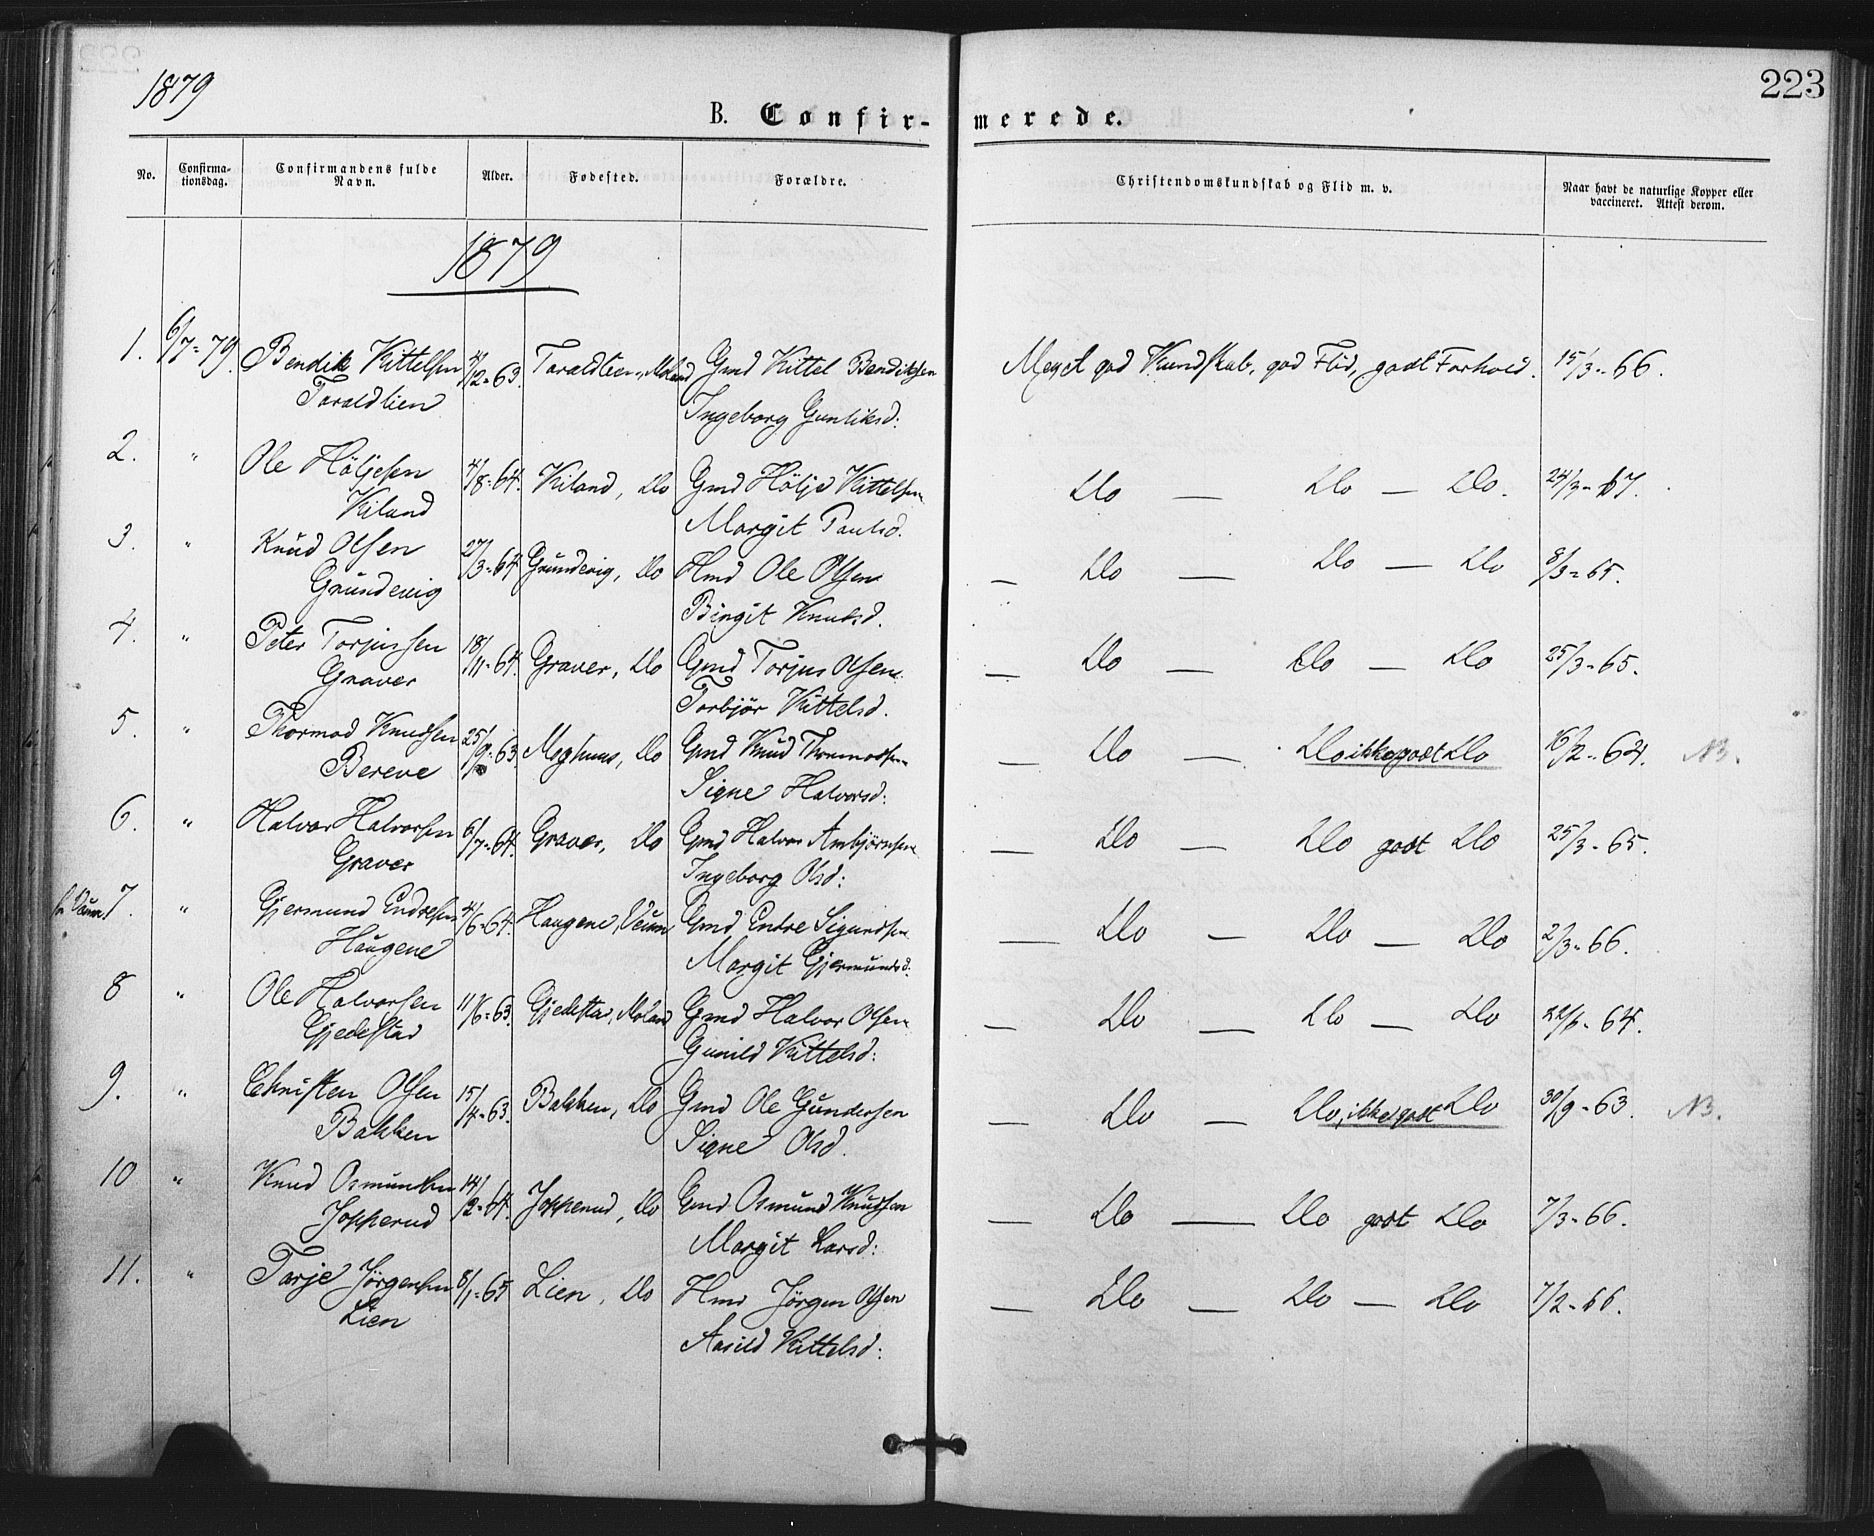 1879
223
B. Confir-merede.
No. Confirma-tionsdag. Confirmandens fulde Navn. Alder. Fødested. Forældre. Christendomskundskab og Flid m. v. Naar havt de naturlige Kopper eller vaccineret. Attest derom.
1879
1. 6/7-79. Bendik Kittelsen 4/12-63 Taraldlien, Moland Gmd Kittel Bendiksen Meget god Kundskab, god Flid, godt Forhold. 15/3-66.
Taraldlien Ingeborg Gunliksd:
2. " Ole Höljesen 4/8-64. Kiland, Do Gmd Hölje Kittelsen Do — Do — Do. 24/3-67.
Kiland Margit Paulsd.
3. " Knud Olsen 27/3-64 Grundevig, Do Hmd Ole Olsen — Do — Do — Do 8/3-65.
Grundevig Birgit Knutsd.
4. " Peter Torjussen 18/11-64. Graver, Do Gmd Torjus Olsen — Do — Do — Do 25/3-65.
Graver Torbjør Kittelsd.
5. " Thormod Knudsen 25/9-63 Do Gmd Knud Thormodsen — Do — Do ikke godt Do 16/2-64. NB.
Bereve Signe Halvorsd:
6. " Halvor Halvorsen 6/7-64. Graver, Do Gmd Halvor Ambjørnsen — Do — Do godt Do 25/3-65.
Graver Ingeborg Olsd:
7. " Gjermund Endresen 4/6-64. Haugene, Veum Gmd Endre Sigurdsen — Do — Do — Do 2/3-66.
Haugene Margit Gjermundsd.
8 " Ole Halvorsen 11/6-63. Gjedestad, Moland Gmd Halvor Olsen — Do — Do — Do 22/6-64.
Gjedestad Gunild Kittelsd:
9. " Christen Olsen 15/4-63. Bakken, Do Gmd Ole Gundersen — Do — Do, ikke godt Do 30/9-63. NB.
Bakken Signe Olsd.
10 " Knud Osmundsen 14/2-64. Jopperud, Do Gmd Osmund Knudsen — Do — Do godt Do 7/3-66.
Jopperud Margit Larsd:
11. " Tarje Jörgensen 8/1-65 Lien, Do Hmd Jörgen Olsen — Do — Do — Do 7/2-66.
Lien Aasild Kittelsd: